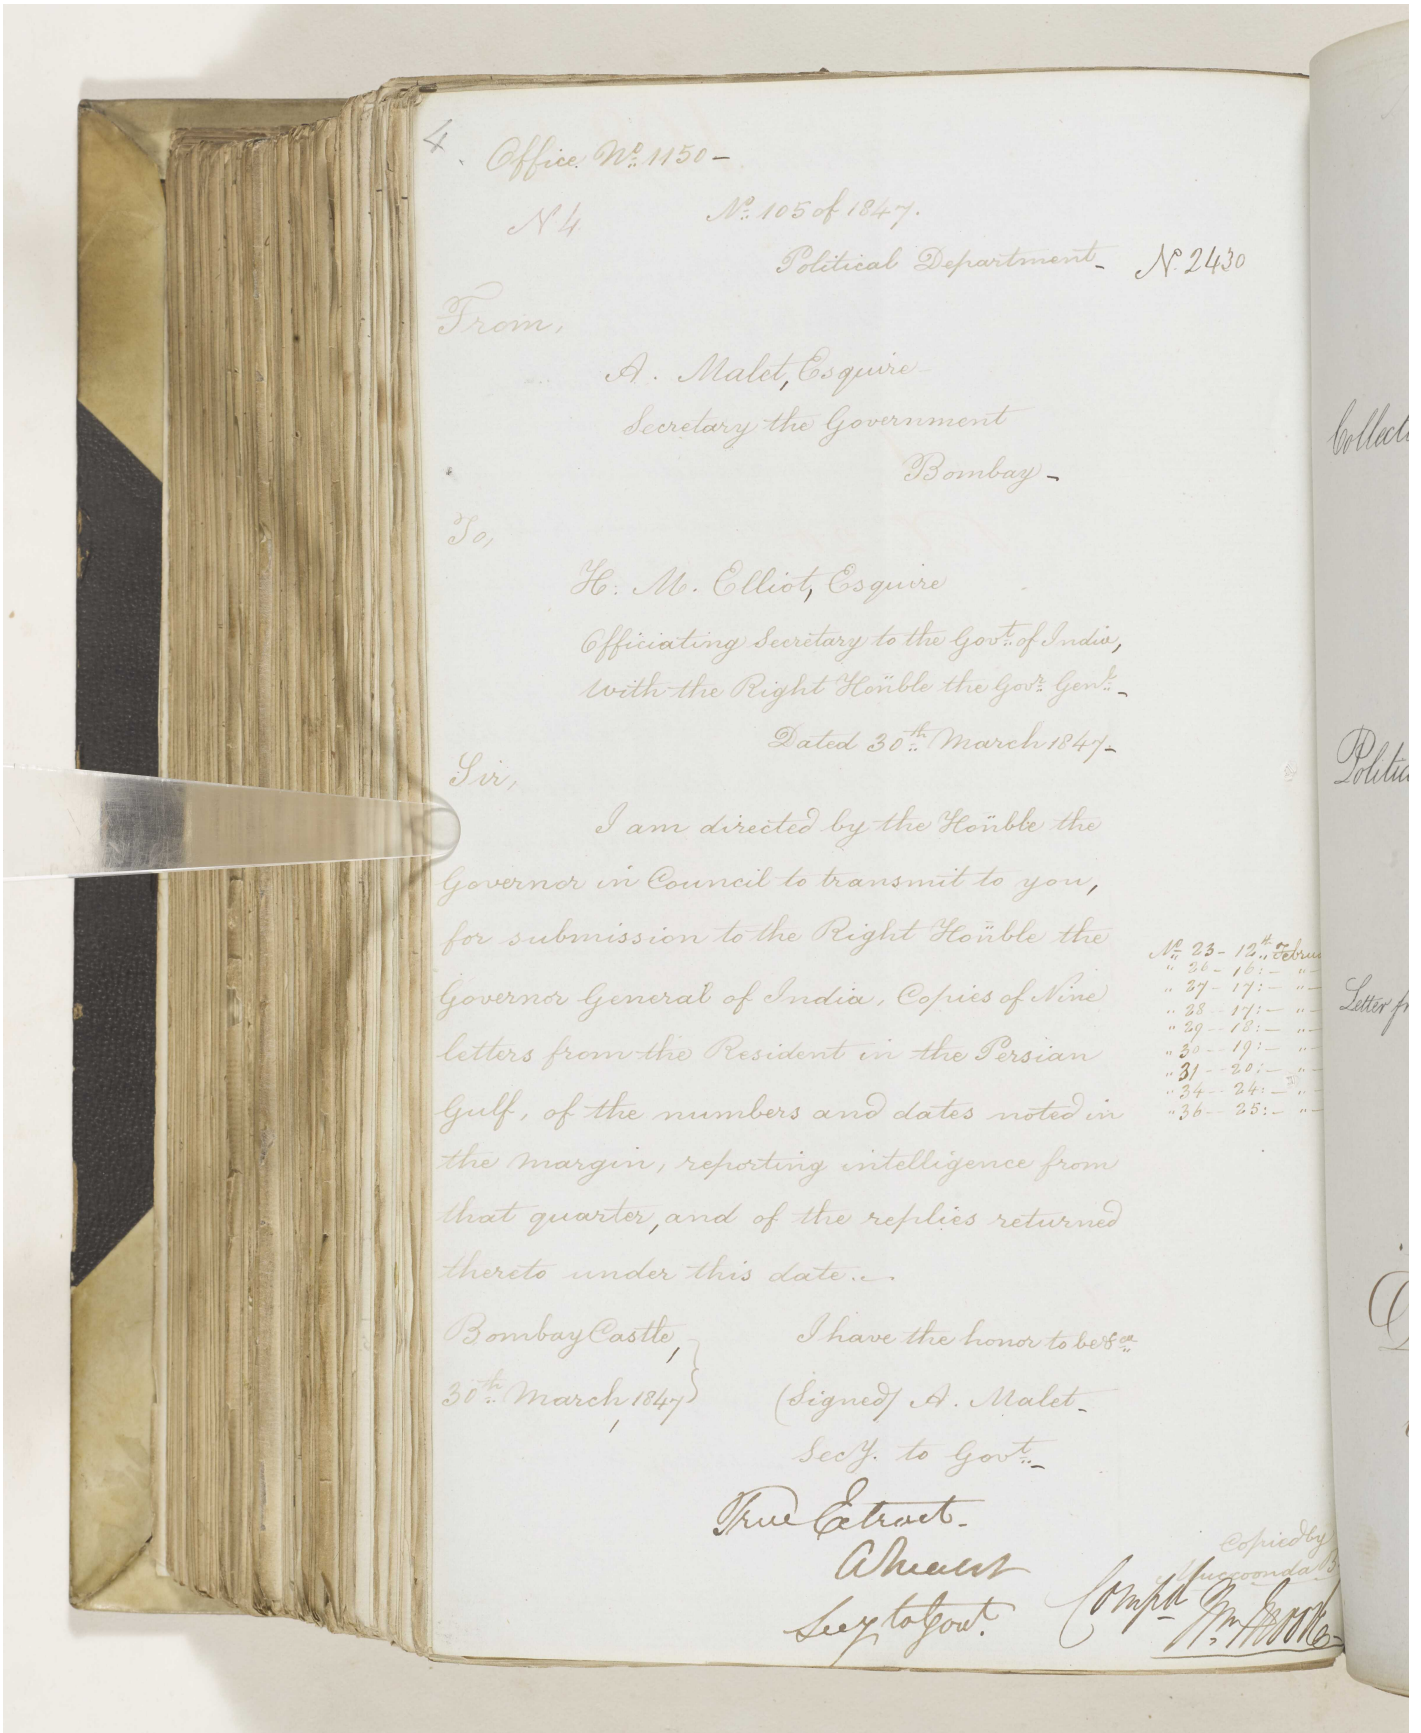 4
Office. No. 1150 -
N 4
No. 105 of 1847.
Political Department - No. 2430
From,
A. Malet, Esquire
Secretary the Government
Bombay -
To,
H. M. Elliot, Esquire
Officiating Secretary to the Govt. of India,
with the Right Honble the Govr. Genl. -
Dated 30th March 1847 -
Sir,
I am directed by the Honble the
Governor in Council to transmit to you,
for submission to the Right Honble the
Governor General of India, Copies of Nine
letters from the Resident in the Persian
Gulf, of the numbers and dates noted in
the margin, reporting intelligence from
that quarter, and of the replies returned
thereto under this date. -
No. 23 - 12th Februa
" 26 - 16: - " -
" 27 - 17: - " -
" 28 - 17: - " -
" 29 - 18: - " -
" 30 - 19: - " -
" 31 - 20: - " -
" 34 - 24: - " -
" 36 - 25: - " -
Bombay Castle,
30th March, 1847
I have the honor to be &ca
(Signed) A. Malet -
Secy. to Govt. -
True Extract -
A Malet
Secy to Govt.
Copied by
Compd
Collecti
Politica
Letter fr